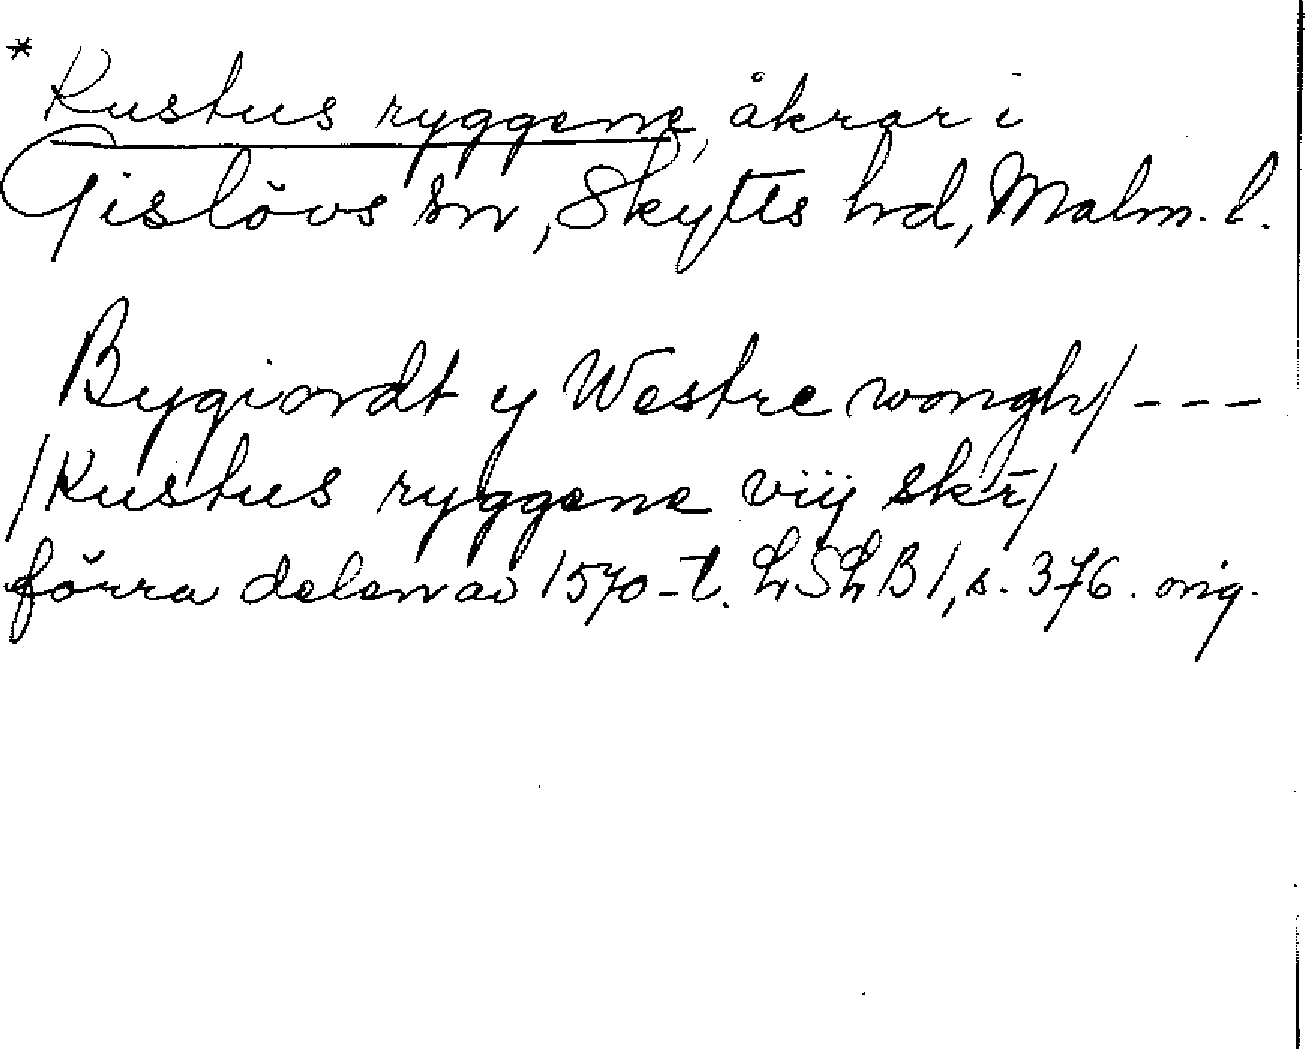 * Kustus ryggene, åkrar i
Gislövs sn, Skytts hd, Malm. l.
Bygiordt y Westre wongh/ ---
/Kustus ryggene viij skr̄/
förra delen av 1570-t. LSLB 1, s. 376. orig.